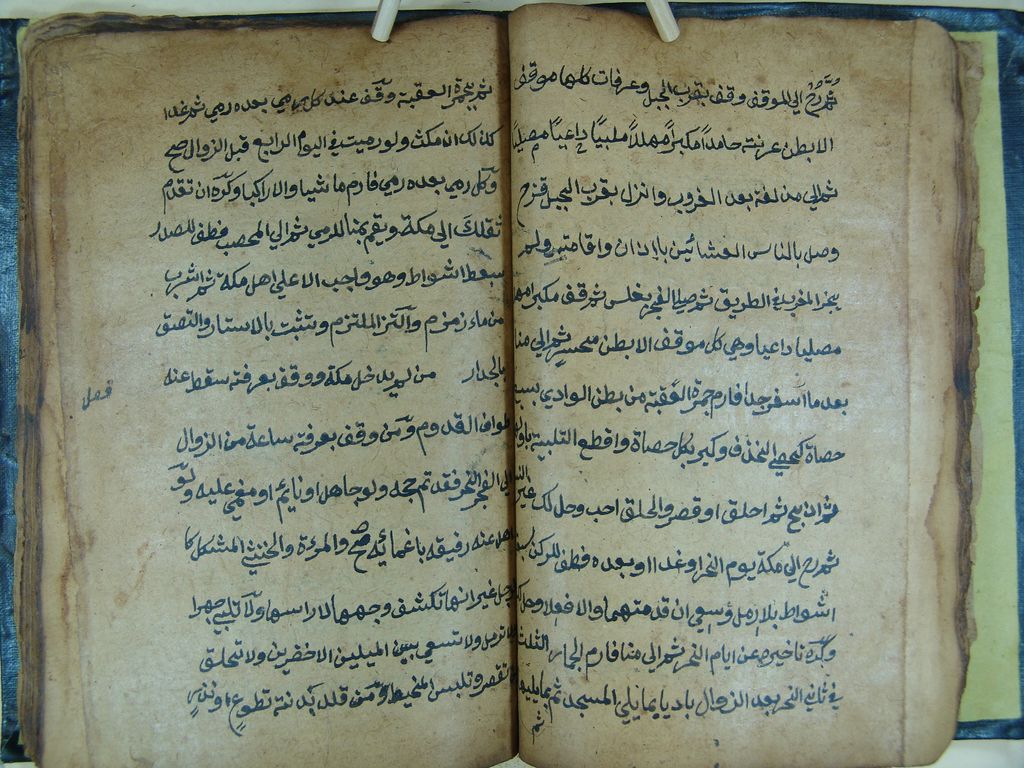 ثم رح الي الموقف وقف بقرب الجبل وعرفات كلها موقف
الا بطن عرنة حامداً مكبراً مهللاً ملبياً داعياً مصلياً
ثم الي مزدلفة بعد الغروب وانزل بقرب الجبل قزح
وصل بالناس العشائين باذان واقامة ولم
يجز المغرب في الطريق ثم صلي الفجر بغلس ثم قف مكبرا مهللا
مصليا داعيا وهي كل موقف الا بطن محسر ثم الي منا
بعد ما اسفر جدا فارم جمرة العقبة من بطن الوادي بسبع
حصاة كحصي الخذف وكبر بكل حصاة واقطع التلبية باولها
ثم اذبح ثم احلق او قصر والحلق احب وحل لك غير النساء
ثم رح الي مكة يوم النحر او غدا او بعده فطف للركن سبعة
اشواط بلا رمل وسعي ان قدمتهما والا افعلا وحل لك
وكره تاخيره عن ايام النحر ثم الي منا فارم الجمار الثلث
في ثاني النحر بعد الزوال باديا بما يلي المسجد ثم بما يليها
ثم
ثم بجمرة العقبة وقف عند كل رمي بعده رمي ثم غدا
كذلك ان مكث ولو رميت في اليوم الرابع قبل الزوال صح
وكل رمي بعده رمي فارم ماشيا والا راكبا وكره ان تقدم
ثقلك الي مكة ويقيم بمنا للرمي ثم الي المحصب فطف للصدر
سبعة اشواط وهو واجب الا علي اهل مكة ثم اشرب
من ماء زمزم والتزم الملتزم وتثبت بالاستار والتصق
بالجدار من لم يدخل مكة ووقف بعرفة سقط عنه
فصل
طواف القدوم ومن وقف بعرفة ساعة من الزوال
الي الفجر النحر فقد تم حجه ولو جاهلا او نايم او مغمي عليه ولو
اهل عنه رفيقه باغمائه صح والمرءة والخنثي المشكل كا
لرجل غير انها تكشف وجهها لا راسها ولا تلبي جهرا
ولا ترمل ولا تسعي بين الميلين الاخضرين ولا تحلق
وتقصر وتلبس المخيط ومن قلد بدنة تطوع او نذر